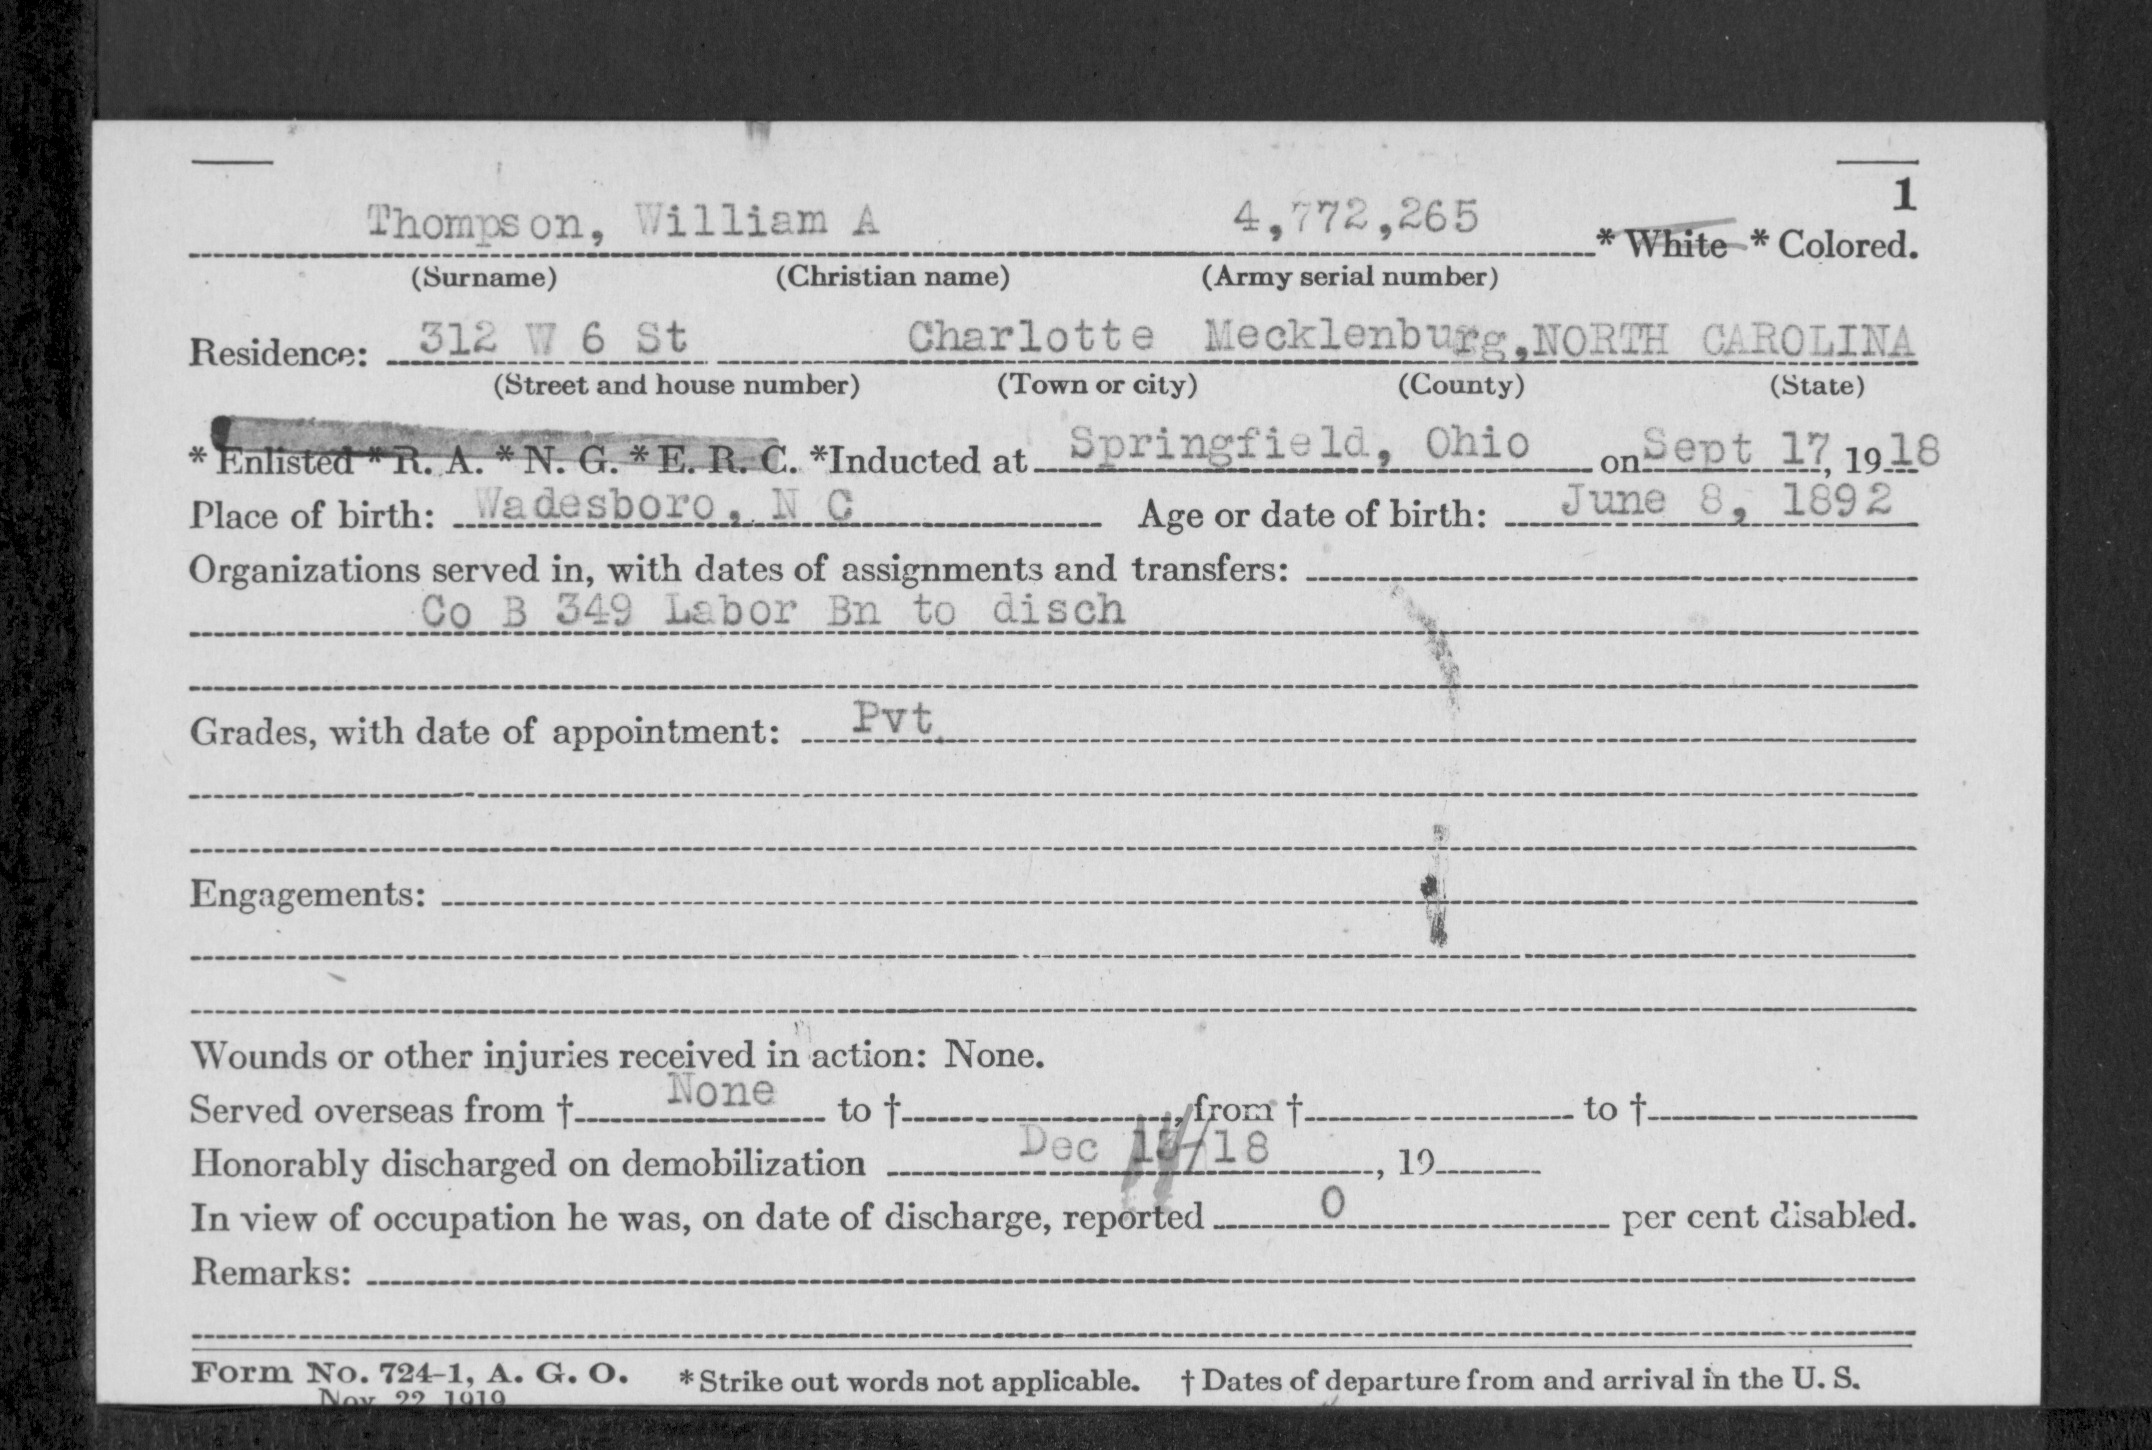 1
Thompson, William A 4,772,265 * White * Colored.
(Surname) (Christian name) (Army serial number)
Residence: 312 W 6 St Charlotte Mecklenburg, NORTH CAROLINA
(Street and house number) (Town or city) (County) (State)
* Enlisted * R. A. * N. G. * E. R. C. *Inducted at Springfield, Ohio on Sept 17, 1918
Place of birth: Wadesboro, N C Age or date of birth: June 8, 1892
Organizations served in, with dates of assignments and transfers:
Co B 349 Labor Bn to disch
Grades, with date of appointment: Pvt
Engagements:
Wounds or other injuries received in action: None.
Served overseas from † None to †, from † to †
Honorably discharged on demobilization Dec /18, 19
In view of occupation he was, on date of discharge, reported 0 per cent disabled.
Remarks:
Form No. 724-1, A. G. O. * Strike out words not applicable. † Dates of departure from and arrival in the U. S.
Nov. 22, 1919